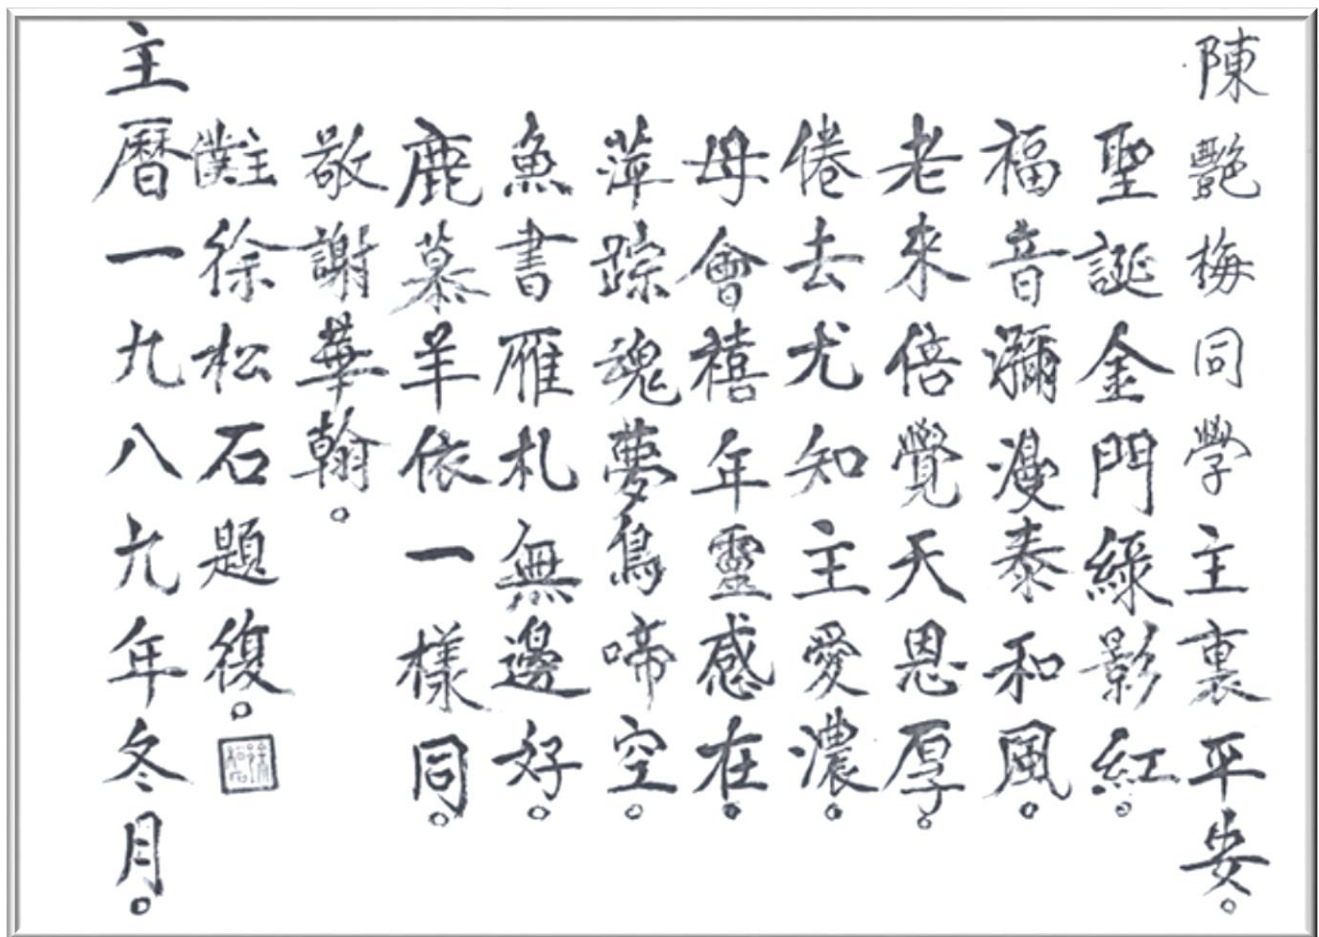 陳艷梅同學主裏平安。
聖誕金門綠影紅。
福音瀰漫泰和風。
老來倍覺天恩厚。
倦去尤知主愛濃。
母會禧年靈感在。
萍踪魂夢鳥啼空。
魚書雁札無邊好。
鹿慕羊依一樣同。
敬謝華翰。
主僕徐松石題復。
主曆一九八九年冬月。